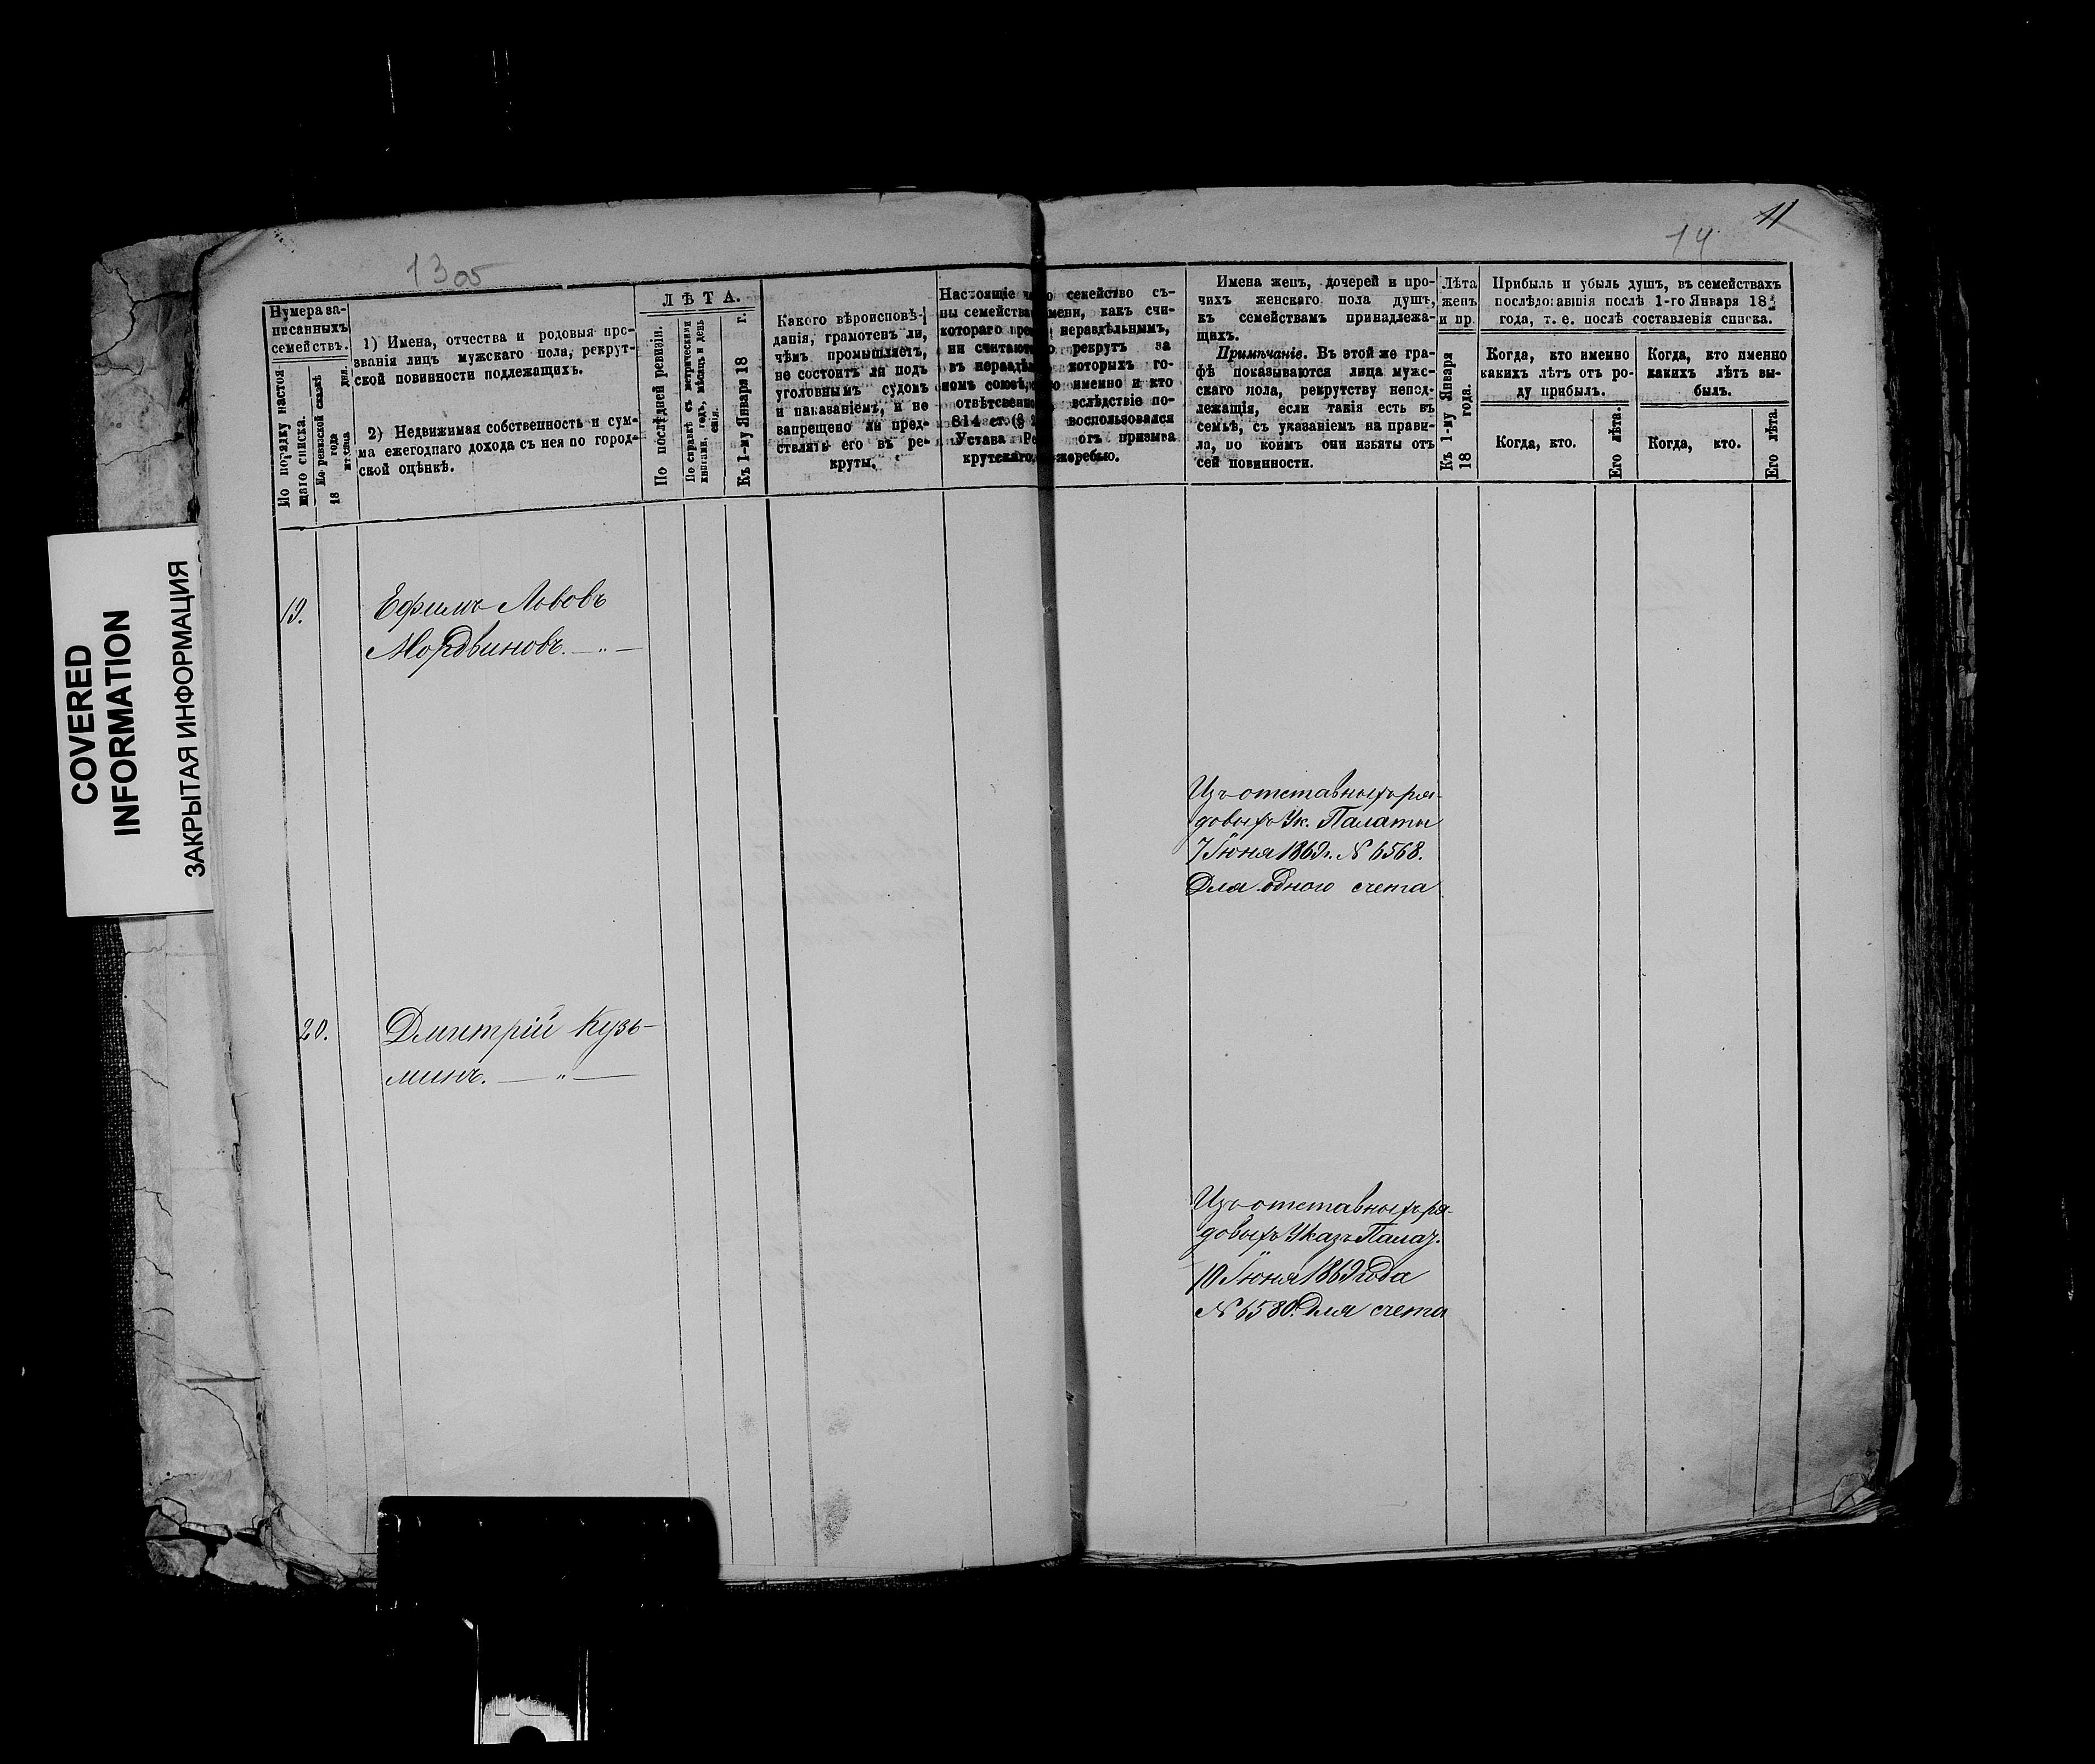 13 об
14
11
COVERED
INFORMATION
ЗАКРЫТАЯ ИНФОРМАЦИЯ
Нумера за-
писанныхъ
семействъ.
По порядку настоя-
щаго списка.
По ревизской сказкѣ
18 года
мѣсяца дня.
1) Имена, отчества и родовыя про-
званія лицъ мужскаго пола, рекрут-
ской повинности подлежащихъ.
2) Недвижимая собственность и сум-
ма ежегоднаго дохода съ нея по город-
ской оцѣнкѣ.
ЛѢТА.
По послѣдней ревизіи.
По справкѣ съ метрическими
книгами, годъ, мѣсяцъ и день
Къ 1-му Января 18 г.
Какого вѣроисповѣ-
данія, грамотенъ ли,
чѣмъ промышляетъ,
не состоитъ ли подъ
уголовнымъ судомъ
и наказаніемъ, и не
запрещено ли пред-
ставлять его въ ре-
круты.
Настоящіе семейство съ-
ны семейства имени, какъ счи-
котораго нераздѣльнымъ,
ни рекрутъ за
въ которыхъ го-
номъ союзѣ, именно и кто
вслѣдствіе по-
814 ст. воспользовался
Устава Ре отъ призыва
крутскаго, жеребью.
Имена женъ, дочерей и про-
чихъ женскаго пола душъ,
къ семействамъ принадлежа-
щихъ.
Примѣчаніе. Въ этой же гра-
фѣ показываются лица мужс-
скаго пола, рекрутству непод-
лежащія, если такія есть въ
семьѣ, съ указаніемъ на прави-
ла, по коимъ они изъяты отъ
сей повинности.
Лѣта
женъ
и пр.
Къ 1-му Января
18 года.
Прибыль и убыль душъ, въ семействахъ
послѣдовавшія послѣ 1-го Января 18
года, т. е. послѣ составленія списка.
Когда, кто именно
какихъ лѣтъ отъ ро-
ду прибылъ.
Когда, кто именно
какихъ лѣтъ вы-
былъ.
Когда, кто.
Его лѣта.
Когда, кто.
Его лѣта.
19.
Ефимъ Львовъ
Мордвиновъ. — „ —
Изъ отставныхъ ря-
довыхъ Ук. Палаты
7 Іюня 1869 г. № 6568.
Для одного счета
20.
Дмитрій Кузь-
минъ. — „ —
Изъ отставныхъ ря-
довыхъ Указъ Палат.
10 Іюня 1869 года
№ 6580. Для счета